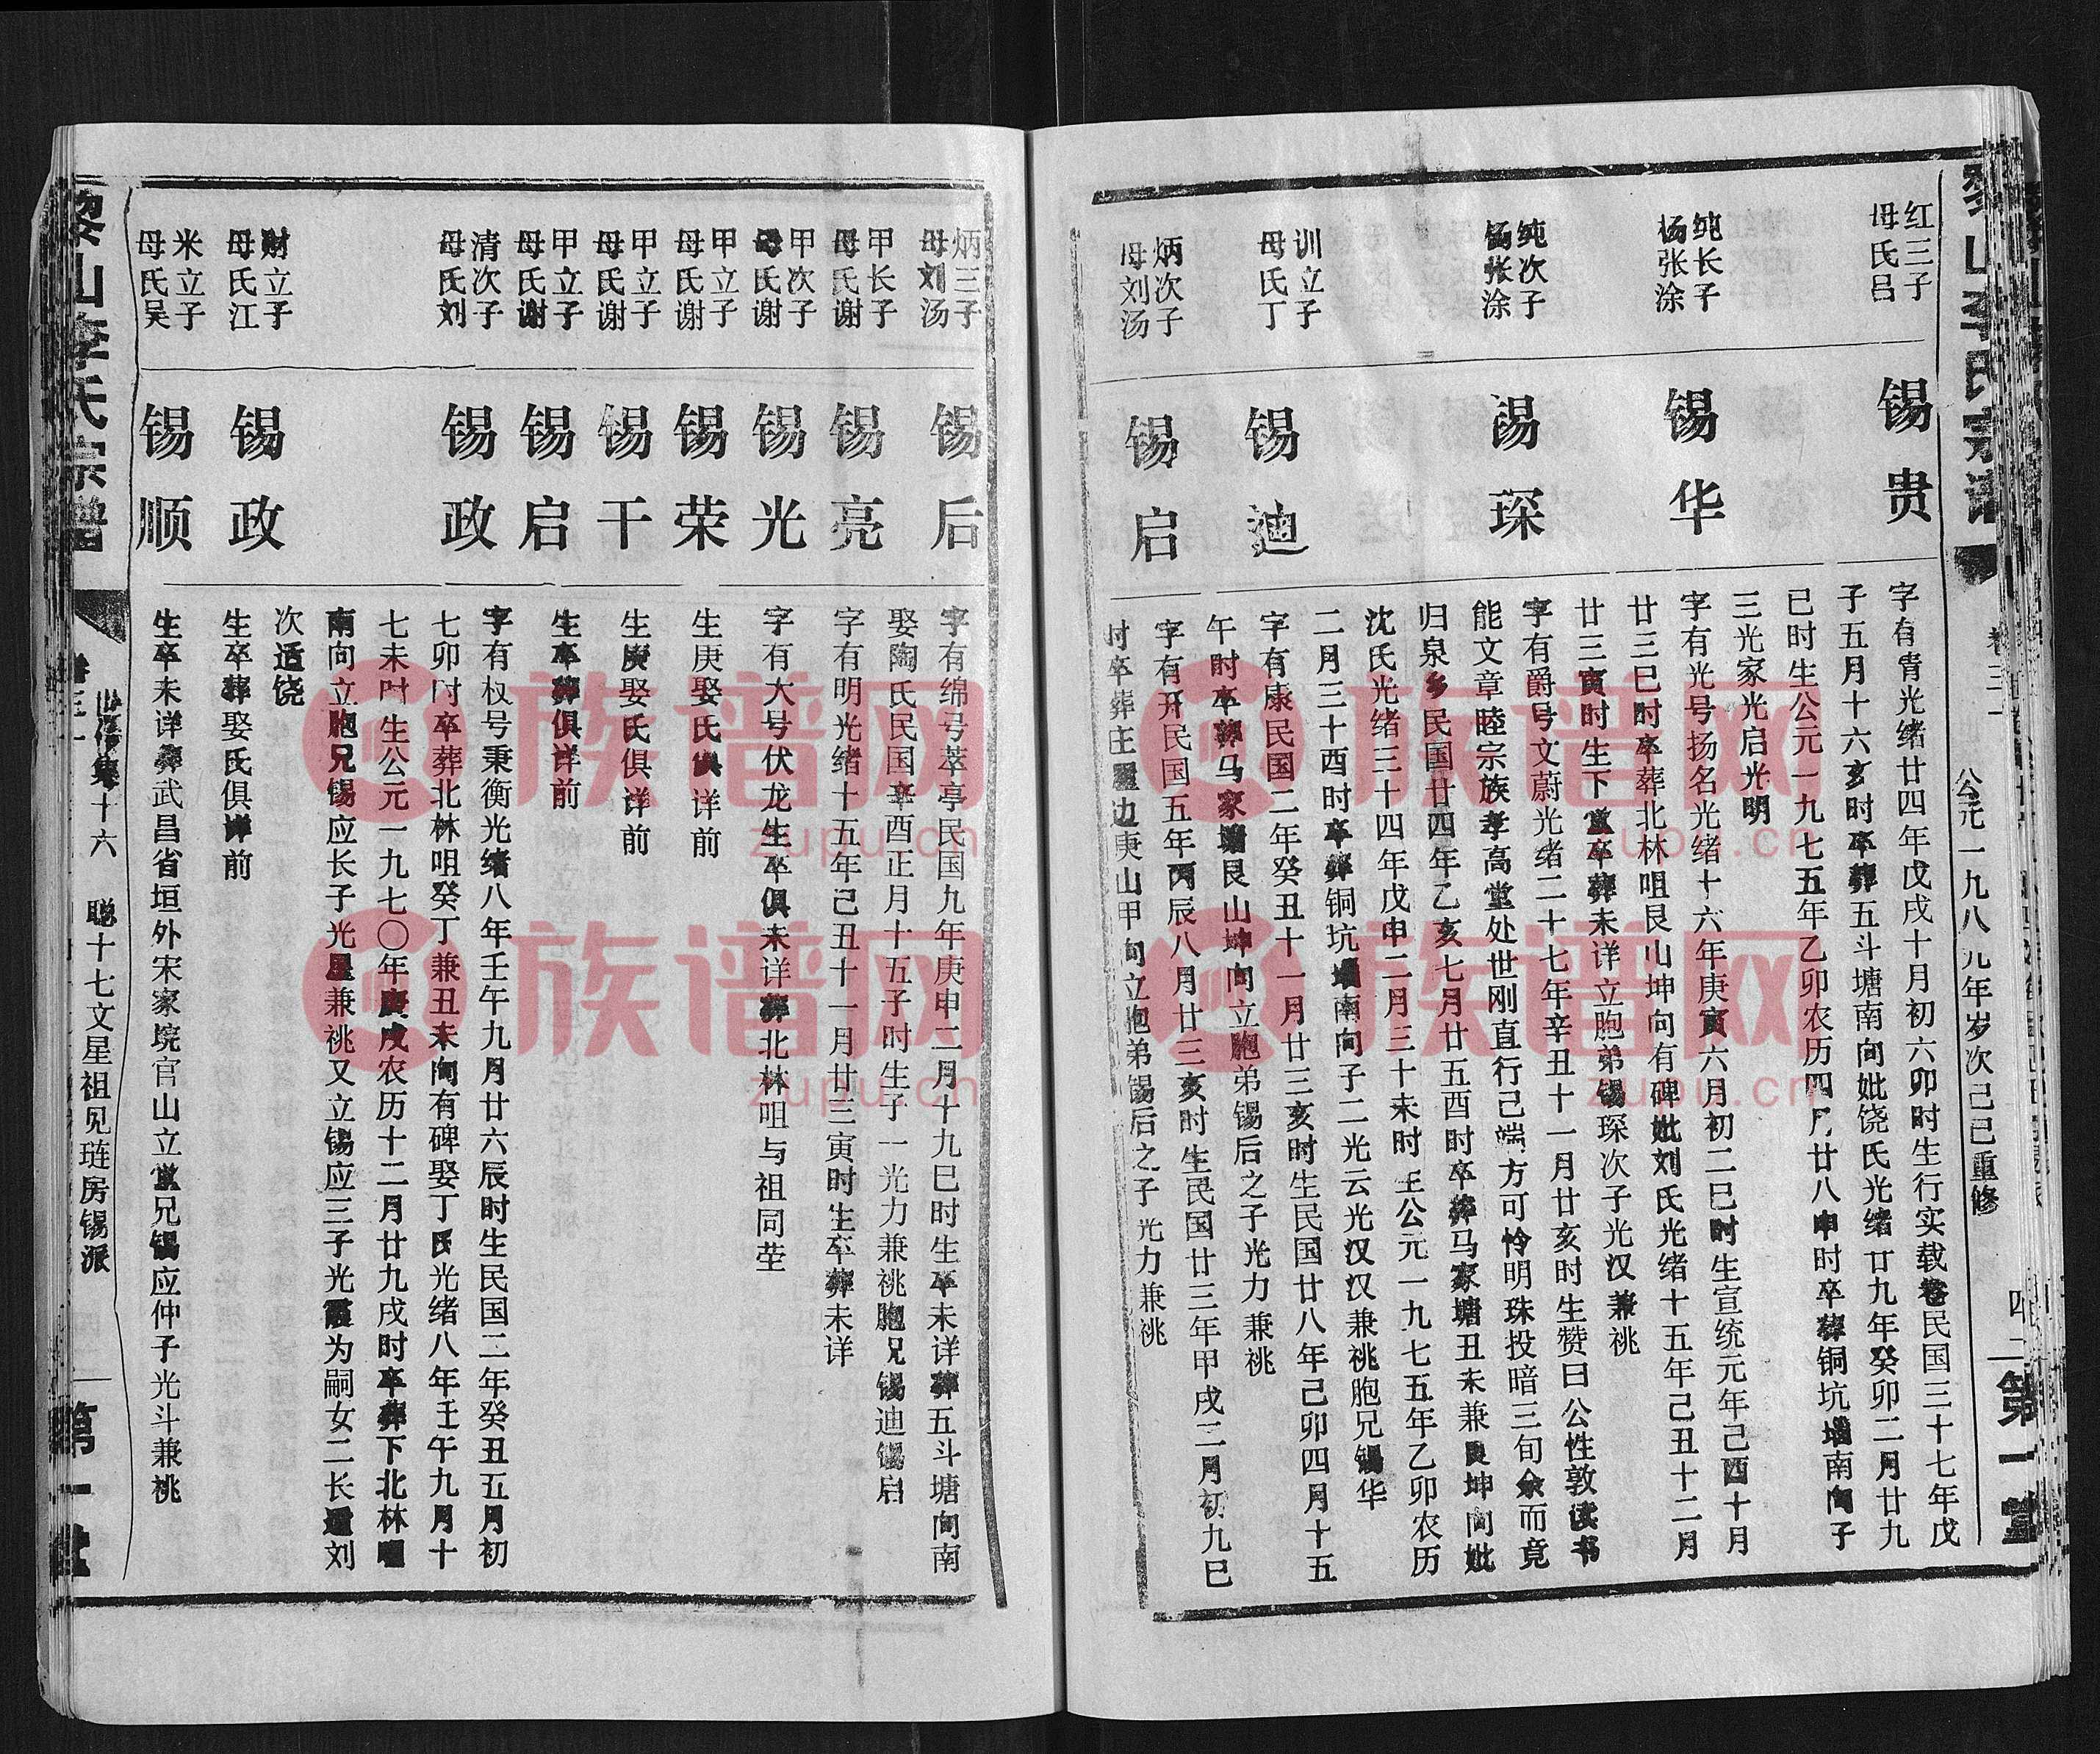 黎山李氏宗谱
卷三一
公元一九八九年岁次己巳重修
四二
第一堂
红三子
母氏吕
锡贵
字有胄光绪廿四年戊戌十月初六卯时生行实载卷民国三十七年戊
子五月十六亥时卒葬五斗塘南向妣饶氏光绪廿九年癸卯二月廿九
巳时生公元一九七五年乙卯农历四月廿八申时卒葬铜坑塘南向子
三光家光启光明
纯长子
杨张涂
锡华
字有光号扬名光绪十六年庚寅六月初二巳时生宣统元年己酉十月
廿三巳时卒葬北林咀艮山坤向有碑妣刘氏光绪十五年己丑十二月
廿三寅时生下堂卒葬未详立胞弟锡琛次子光汉兼祧
纯次子
杨张涂
锡琛
字有爵号文蔚光绪二十七年辛丑十一月廿亥时生赞曰公性敦读书
能文章睦宗族孝高堂处世刚直行己端方可怜明珠投暗三旬余而竟
归泉乡民国廿四年乙亥七月廿五酉时卒葬马家塘丑未兼艮坤向妣
沈氏光绪三十四年戊申二月三十未时生公元一九七五年乙卯农历
二月三十酉时卒葬铜坑塘南向子二光云光汉汉兼祧胞兄锡华
训立子
母氏丁
锡迪
字有康民国二年癸丑十一月廿三亥时生民国廿八年己卯四月十五
午时卒葬马家塘艮山坤向立胞弟锡后之子光力兼祧
炳次子
母刘汤
锡启
字有开民国五年丙辰八月廿三亥时生民国廿三年甲戌二月初九巳
时卒葬庄屋边庚山甲向立胞弟锡后之子光力兼祧
炳三子
母刘汤
锡后
字有绵号萃亭民国九年庚申二月十九巳时生卒未详葬五斗塘向南
娶陶氏民国辛酉正月十五子时生子一光力兼祧胞兄锡迪锡启
甲长子
母氏谢
锡亮
字有明光绪十五年己丑十一月廿三寅时生卒葬未详
甲次子
母氏谢
锡光
字有大号伏龙生卒俱未详葬北林咀与祖同茔
甲立子
母氏谢
锡荣
生庚娶氏俱详前
甲立子
母氏谢
锡干
生庚娶氏俱详前
甲立子
母氏谢
锡启
生卒葬俱详前
清次子
母氏刘
锡政
字有权号秉衡光绪八年壬午九月廿六辰时生民国二年癸丑五月初
七卯时卒葬北林咀癸丁兼丑未向有碑娶丁氏光绪八年壬午九月十
七未时生公元一九七〇年庚戌农历十二月廿九戌时卒葬下北林咀
南向立胞兄锡应长子光星兼祧又立锡应三子光霞为嗣女二长适刘
次适饶
财立子
母氏江
锡政
生卒葬娶氏俱详前
米立子
母氏吴
锡顺
生卒未详葬武昌省垣外宋家垸官山立堂兄锡应仲子光斗兼祧
黎山李氏宗谱
卷三一
世系集十六
聪十七文星祖见琏房锡派
第一堂
族谱网
zupu.cn
族谱网
zupu.cn
族谱网
zupu.cn
族谱网
zupu.cn